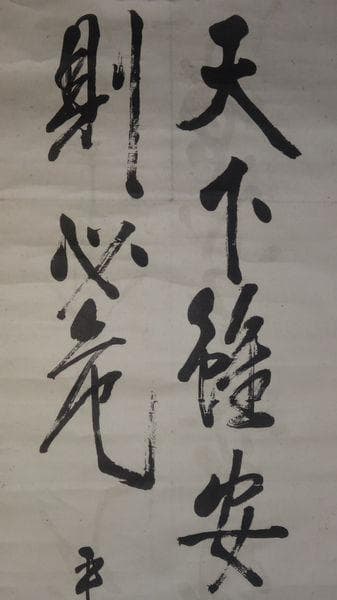 天下雖安
則必危
平